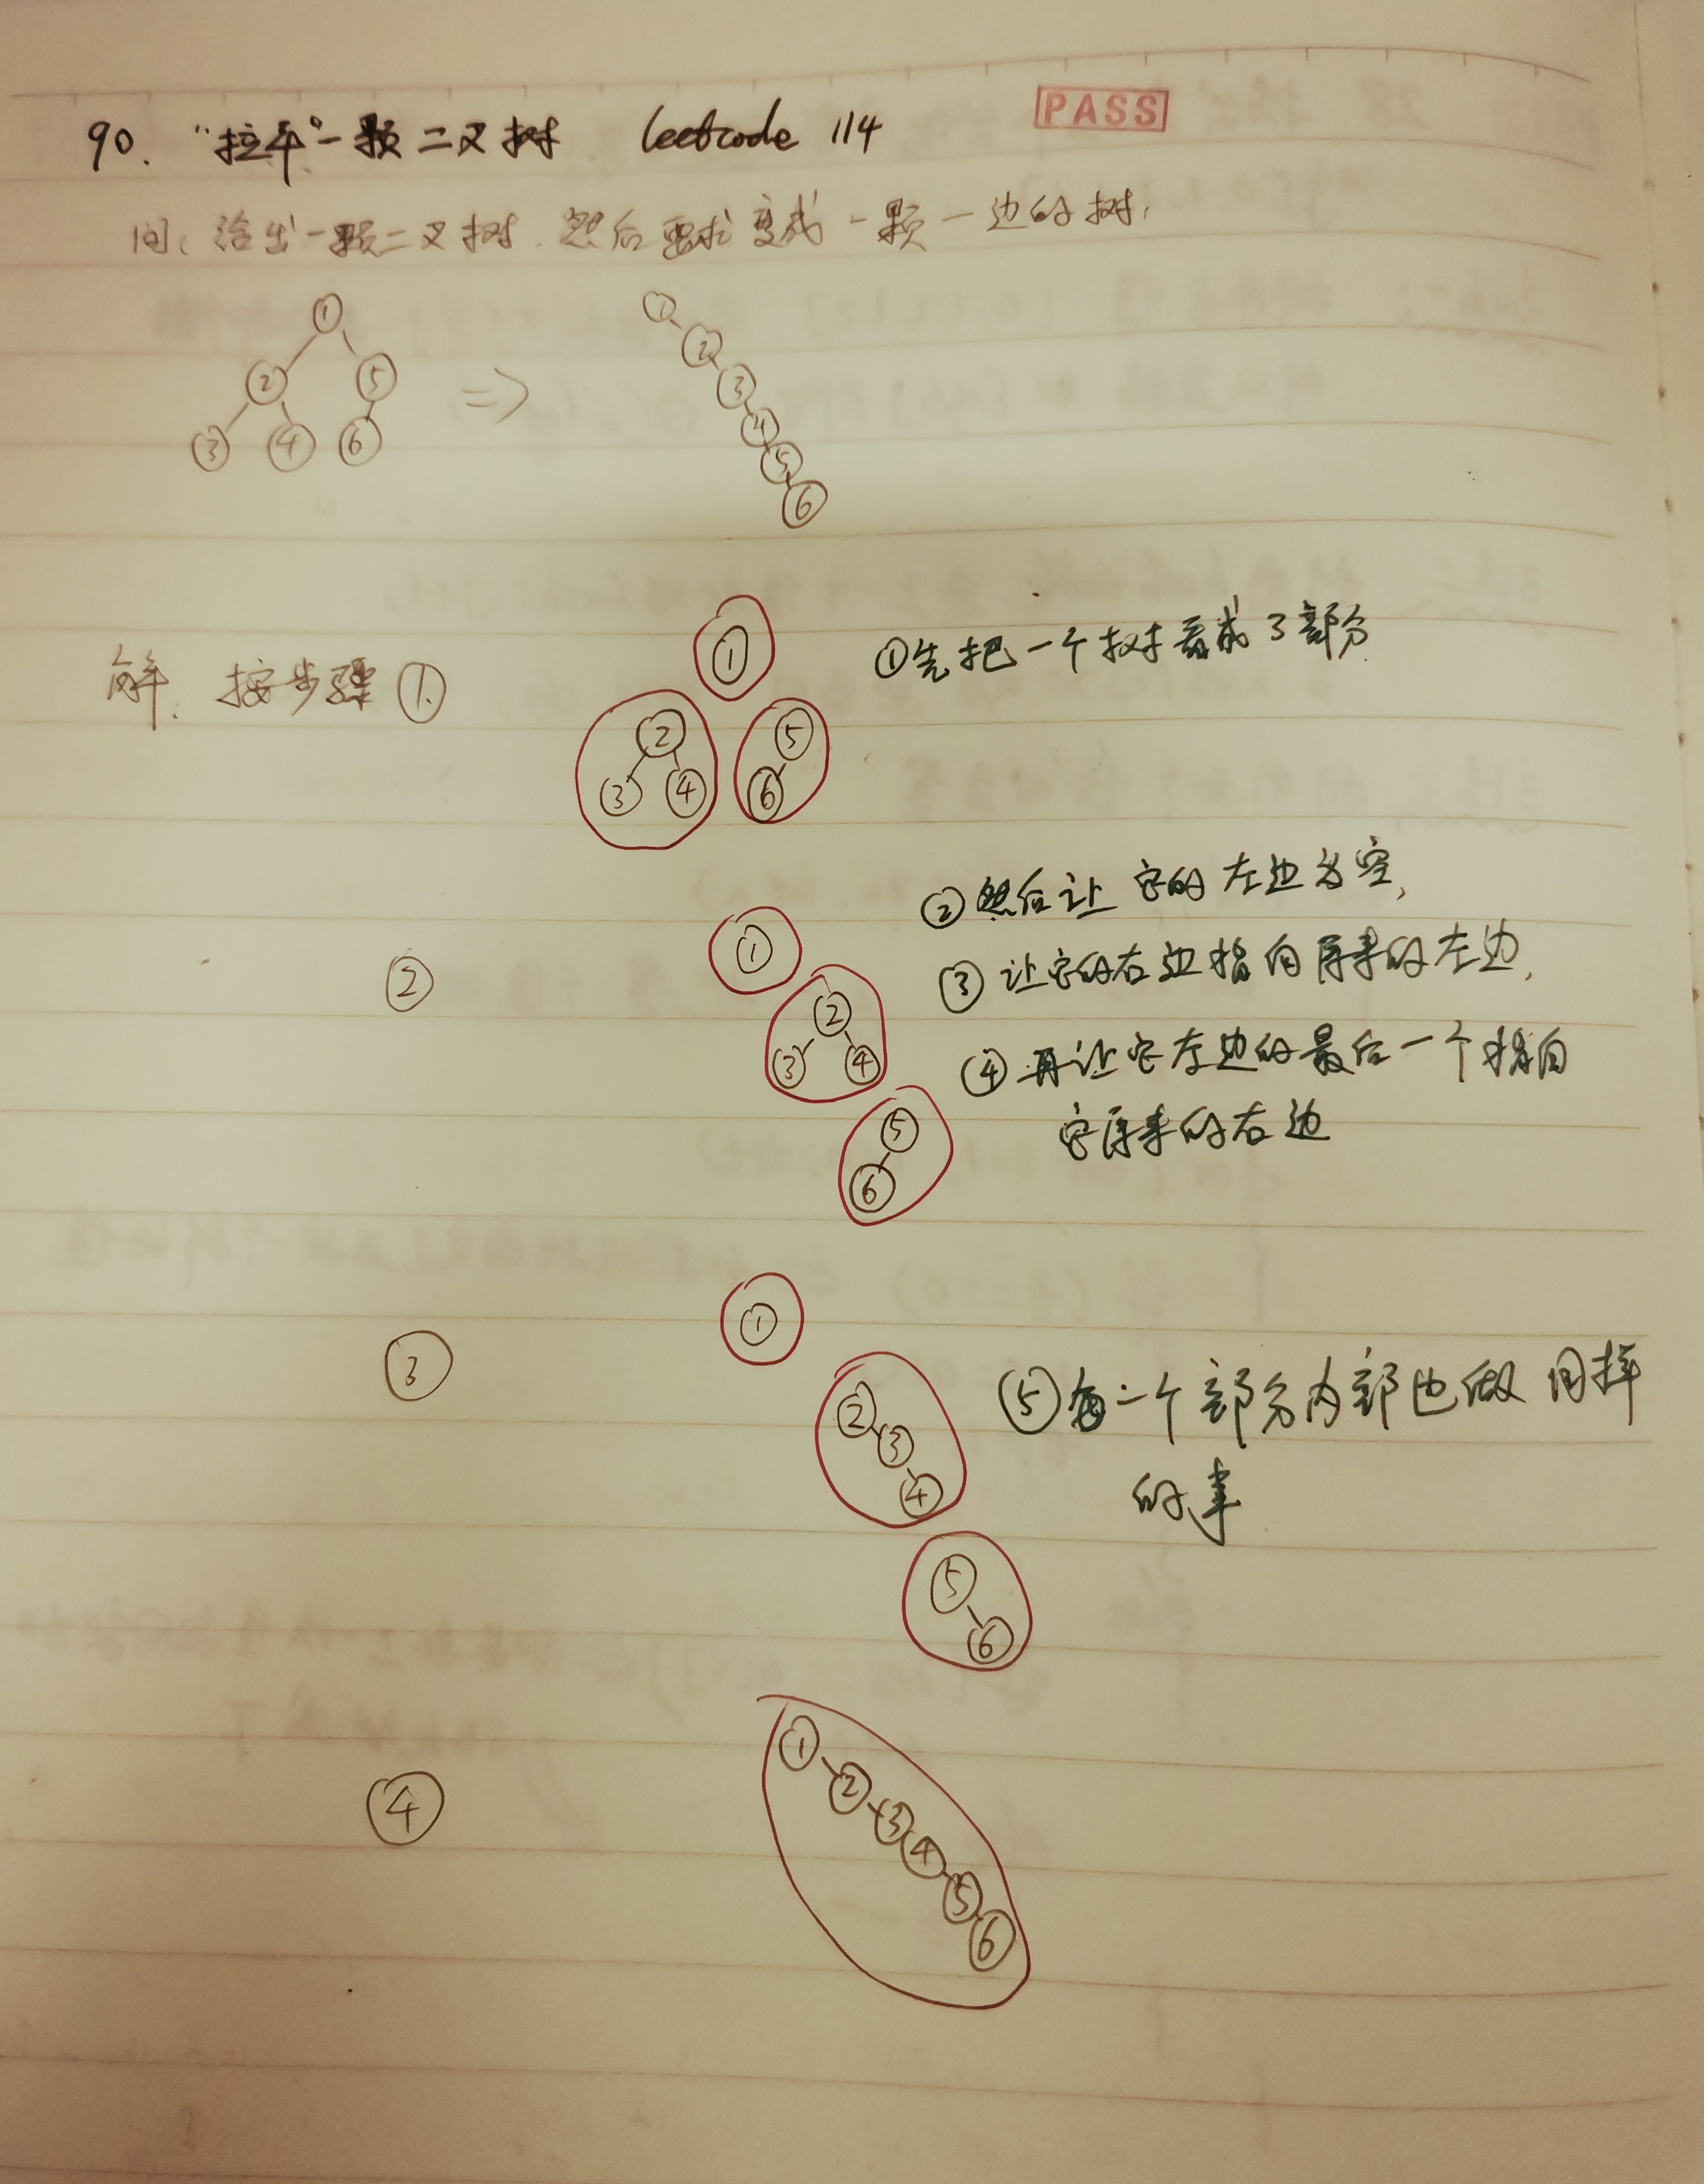 90. "拉平"一颗二叉树 leetcode 114 PASS
问: 给出一颗二叉树. 然后要求变成一颗一边的树.
1 1
2 5 => 2
3 4 6 3
4
5
6
解. 按步骤 ① 1 ①先把一个树看成3部分
2 5
3 4 6
②然后让它的左边为空,
② 1 ③让它的右边指向原来的左边,
2
3 4 ④再让它左边的最后一个指向
5 它原来的右边
6
1
③ 2 ⑤每一个部分内部也做同样
3
4 的事
5
6
1
④ 2
3
4
5
6